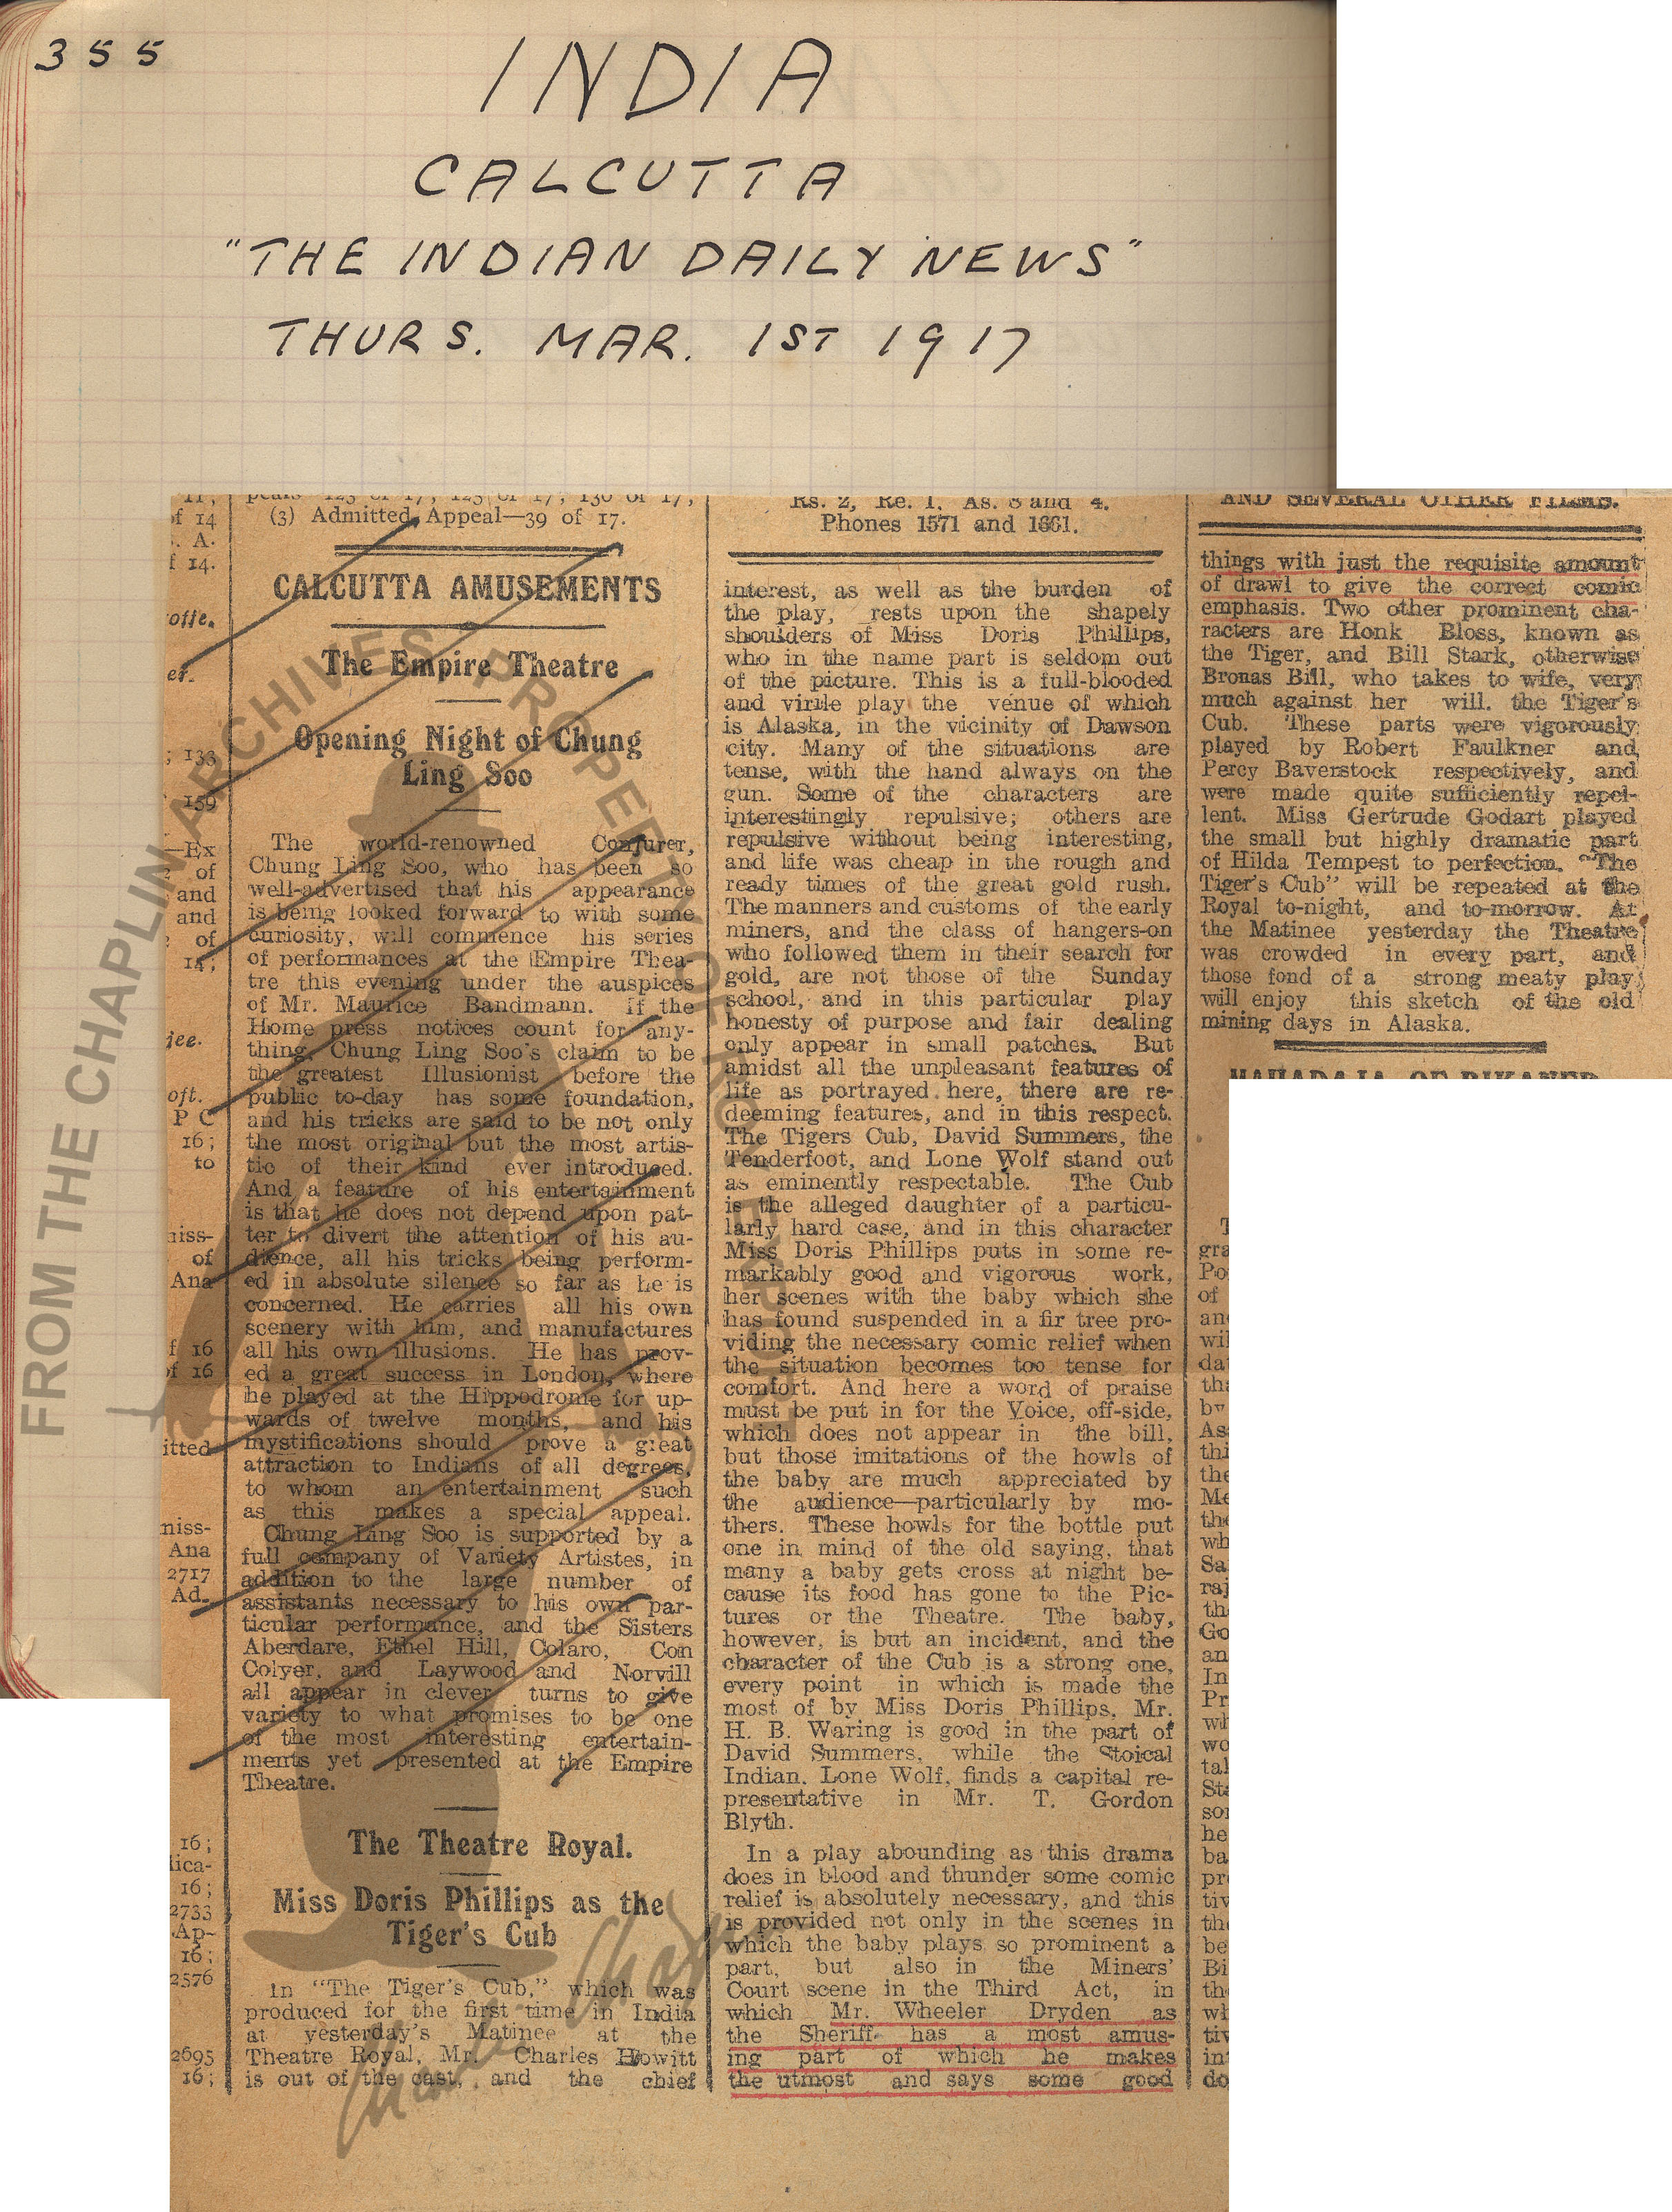 355
INDIA
CALCUTTA
"THE INDIAN DAILY NEWS"
THURS. MAR. 1ST 1917
(3) Admitted Appeal—39 of 17.
CALCUTTA AMUSEMENTS
The Empire Theatre
Opening Night of Chung
Ling Soo
The world-renowned Conjurer,
Chung Ling Soo, who has been so
well-advertised that his appearance
is being looked forward to with some
curiosity, will commence his series
of performances at the Empire Thea-
tre this evening under the auspices
of Mr. Maurice Bandmann. If the
Home press notices count for any-
thing, Chung Ling Soo's claim to be
the greatest Illusionist before the
public to-day has some foundation,
and his tricks are said to be not only
the most original but the most artis-
tic of their kind ever introduced.
And a feature of his entertainment
is that he does not depend upon pat-
ter to divert the attention of his au-
dience, all his tricks being perform-
ed in absolute silence so far as he is
concerned. He carries all his own
scenery with him, and manufactures
all his own illusions. He has prov-
ed a great success in London, where
he played at the Hippodrome for up-
wards of twelve months, and his
mystifications should prove a great
attraction to Indians of all degrees,
to whom an entertainment such
as this makes a special appeal.
Chung Ling Soo is supported by a
full company of Variety Artistes, in
addition to the large number of
assistants necessary to his own par-
ticular performance, and the Sisters
Aberdare, Ethel Hill, Colaro, Con
Colyer, and Laywood and Norvill
all appear in clever turns to give
variety to what promises to be one
of the most interesting entertain-
ments yet presented at the Empire
Theatre.
The Theatre Royal.
Miss Doris Phillips as the
Tiger's Cub
In "The Tiger's Cub," which was
produced for the first time in India
at yesterday's Matinee at the
Theatre Royal, Mr. Charles Howitt
is out of the cast, and the chief
Rs. 2, Re. 1, As. 8 and 4.
Phones 1571 and 1661.
interest, as well as the burden of
the play, rests upon the shapely
shoulders of Miss Doris Phillips,
who in the name part is seldom out
of the picture. This is a full-blooded
and virile play the venue of which
is Alaska, in the vicinity of Dawson
city. Many of the situations are
tense, with the hand always on the
gun. Some of the characters are
interestingly repulsive; others are
repulsive without being interesting,
and life was cheap in the rough and
ready times of the great gold rush.
The manners and customs of the early
miners, and the class of hangers-on
who followed them in their search for
gold, are not those of the Sunday
school, and in this particular play
honesty of purpose and fair dealing
only appear in small patches. But
amidst all the unpleasant features of
life as portrayed here, there are re-
deeming features, and in this respect.
The Tigers Cub, David Summers, the
Tenderfoot, and Lone Wolf stand out
as eminently respectable. The Cub
is the alleged daughter of a particu-
larly hard case, and in this character
Miss Doris Phillips puts in some re-
markably good and vigorous work,
her scenes with the baby which she
has found suspended in a fir tree pro-
viding the necessary comic relief when
the situation becomes too tense for
comfort. And here a word of praise
must be put in for the Voice, off-side,
which does not appear in the bill,
but those imitations of the howls of
the baby are much appreciated by
the audience—particularly by mo-
thers. These howls for the bottle put
one in mind of the old saying, that
many a baby gets cross at night be-
cause its food has gone to the Pic-
tures or the Theatre. The baby,
however, is but an incident, and the
character of the Cub is a strong one,
every point in which is made the
most of by Miss Doris Phillips. Mr.
H. B. Waring is good in the part of
David Summers, while the Stoical
Indian, Lone Wolf, finds a capital re-
presentative in Mr. T. Gordon
Blyth.
In a play abounding as this drama
does in blood and thunder some comic
relief is absolutely necessary, and this
is provided not only in the scenes in
which the baby plays so prominent a
part, but also in the Miners'
Court scene in the Third Act, in
which Mr. Wheeler Dryden as
the Sheriff has a most amus-
ing part of which he makes
the utmost and says some good
AND SEVERAL OTHER FILMS.
things with just the requisite amount
of drawl to give the correct comic
emphasis. Two other prominent cha-
racters are Honk Bloss, known as
the Tiger, and Bill Stark, otherwise
Bronas Bill, who takes to wife, very
much against her will, the Tiger's
Cub. These parts were vigorously
played by Robert Faulkner and
Percy Baverstock respectively, and
were made quite sufficiently repel-
lent. Miss Gertrude Godart played
the small but highly dramatic part
of Hilda Tempest to perfection. "The
Tiger's Cub" will be repeated at the
Royal to-night, and to-morrow. At
the Matinee yesterday the Theatre
was crowded in every part, and
those fond of a strong meaty play
will enjoy this sketch of the old
mining days in Alaska.
MAHARAJA OF BIKANER
FROM THE CHAPLIN ARCHIVES PROPERTY OF ROY EXPORT
Charlie Chaplin